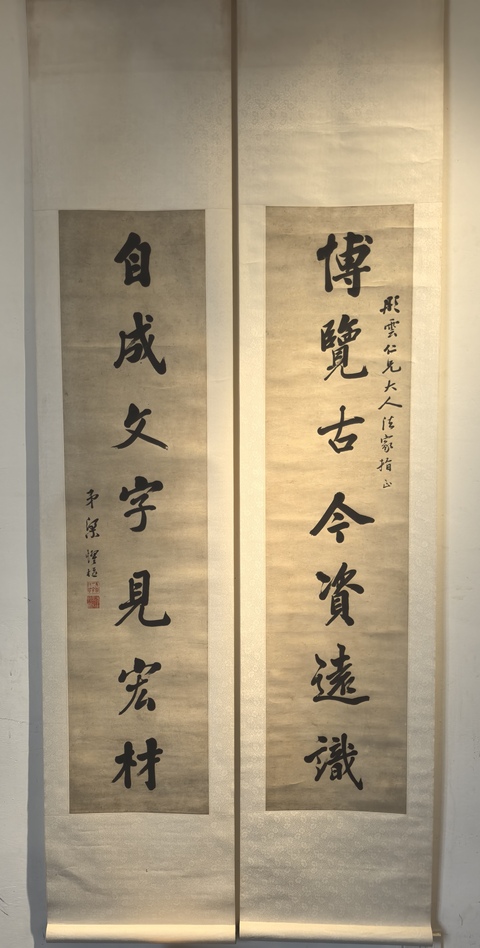 博覽古今資遠識
彤雲仁兄大人法家指正
自成文字見宏材
弟梁耀樞